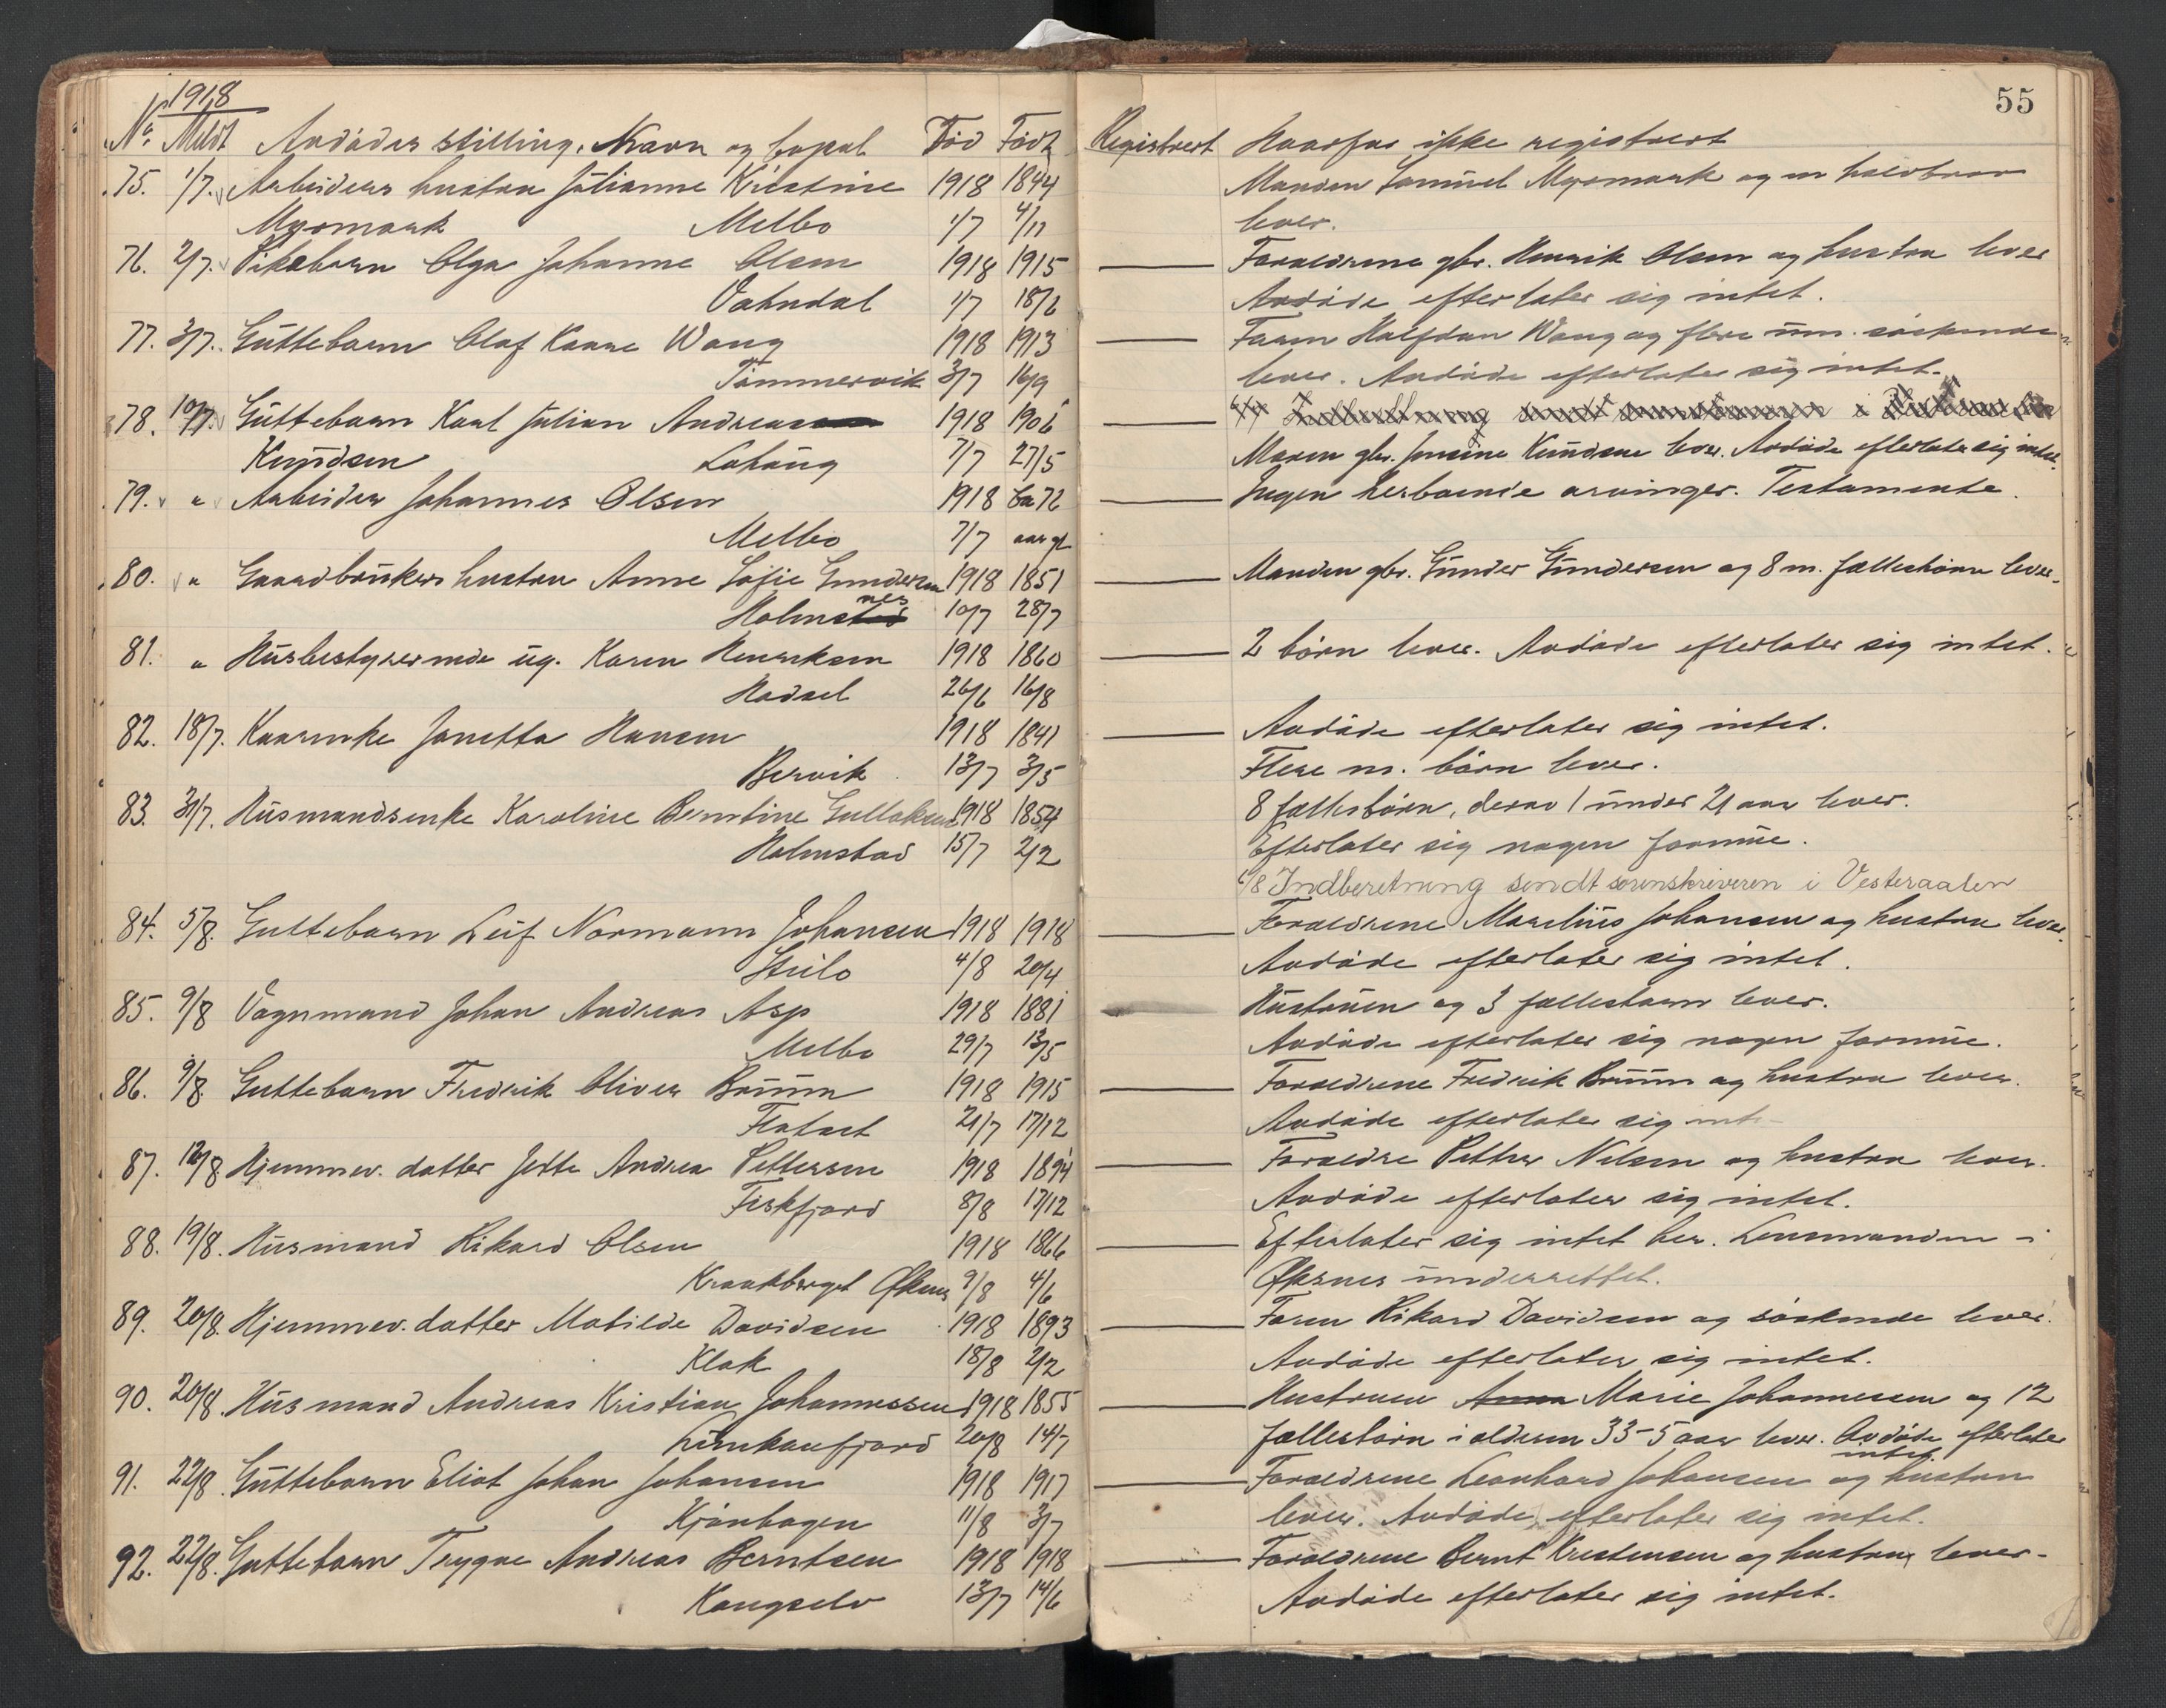 1918
No. Meldt Avdødes stilling, Navn og bopæl Død Født
75. 1/7. Arbeiders hustru Julianne Kristine 1918 1844
Myrmark Melbo 1/7 4/11
76. 2/7. Pikebarn Olga Johanne Olsen 1918 1915
1/7 18/2
77. 3/7. Guttebarn Olaf Kaare Wang 1918 1913
Tømmervik 3/7 16/9
78. 10/7. Guttebarn Karl Julian Andreas 1918 1906
Knudsen 7/7 27/5
79. " Arbeider Johannes Olsen 1918 ca 72
Melbo 7/7 aar gl
80. " Gaardbrukers hustru Anne Sofie Gundersen 1918 1851
Holmsnes 10/7 28/7
81. " Husbestyrerinde ug. Karen Henriksen 1918 1860
Hadsel 26/6 16/8
82. 18/7. Kaarenke Janetta Hansen 1918 1841
Bervik 13/7 3/5
83. 31/7. Husmandsenke Karoline Berntine Gullaksen 1918 1854
Holmstad 15/7 2/2
84. 5/8. Guttebarn Leif Normann Johansen 1918 1918
Steilo 4/8 20/4
85. 9/8 Vognmand Johan Andreas Asp 1918 1881
Melbo 29/7 13/5
86. 9/8. Guttebarn Fredrik Oliver Bruun 1918 1915
Flatset 21/7 17/12
87. 12/8 Hjemmev. datter Jette Andrea Pettersen 1918 1894
Fiskfjord 8/8 17/12
88. 19/8. Husmand Rikard Olsen 1918 1866
Kraakberget Øksnes 9/8 4/6
89. 20/8. Hjemmev. datter Matilde Davidsen 1918 1893
Klak 18/8 2/2
90. 20/8. Husmand Andreas Kristian Johannessen 1918 1855
Lunkanfjord 20/8 14/7
91. 22/8. Guttebarn Eliot Johan Johansen 1918 1917
Kjønhagen 11/8 3/7
92. 22/8. Guttebarn Trygve Andreas Berntsen 1918 1918
Kongselv 13/7 14/6
55
Registrert Hvorfor ikke registrert
Manden Samuel Myrmark og en halvbror
lever.
Forældrene gbr. Henrik Olsen og hustru lever
Avdøde efterlater sig intet.
Faren Halfdan Wang og flere um. søskende
lever. Avdøde efterlater sig intet.
Moren gbr. Jensine Knudsen lever. Avdøde efterlater sig intet.
Ingen herboende arvinger. Testamente.
Manden gbr. Gunder Gundersen og 8 m. fællesbørn lever.
2 børn lever. Avdøde efterlater sig intet.
Avdøde efterlater sig intet.
Flere m. børn lever.
8 fællesbørn, derav 1 under 21 aar lever.
Efterlater sig nogen formue.
6/8 Indberetning sendt sorenskriveren i Vesteraalen
Forældrene Marelius Johansen og hustru lever.
Avdøde efterlater sig intet.
Hustruen og 3 fællesbarn lever.
Avdøde efterlater sig nogen formue.
Forældrene Fredrik Bruun og hustru lever.
Avdøde efterlater sig int-
Forældre Petter Nilsen og hustru lever.
Avdøde efterlater sig intet.
Efterlater sig intet her. Lensmanden i
Øksnes underrettet.
Faren Rikard Davidsen og søskende lever.
Avdøde efterlater sig intet.
Hustruen Anna Marie Johannessen og 12
fællesbørn i alderen 33-5 aar lever. Avdøde efterlater
intet
Forældrene Leonhard Johansen og hustru
lever. Avdøde efterlater sig intet.
Forældrene Bernt Kristensen og hustru lever.
Avdøde efterlater sig intet.